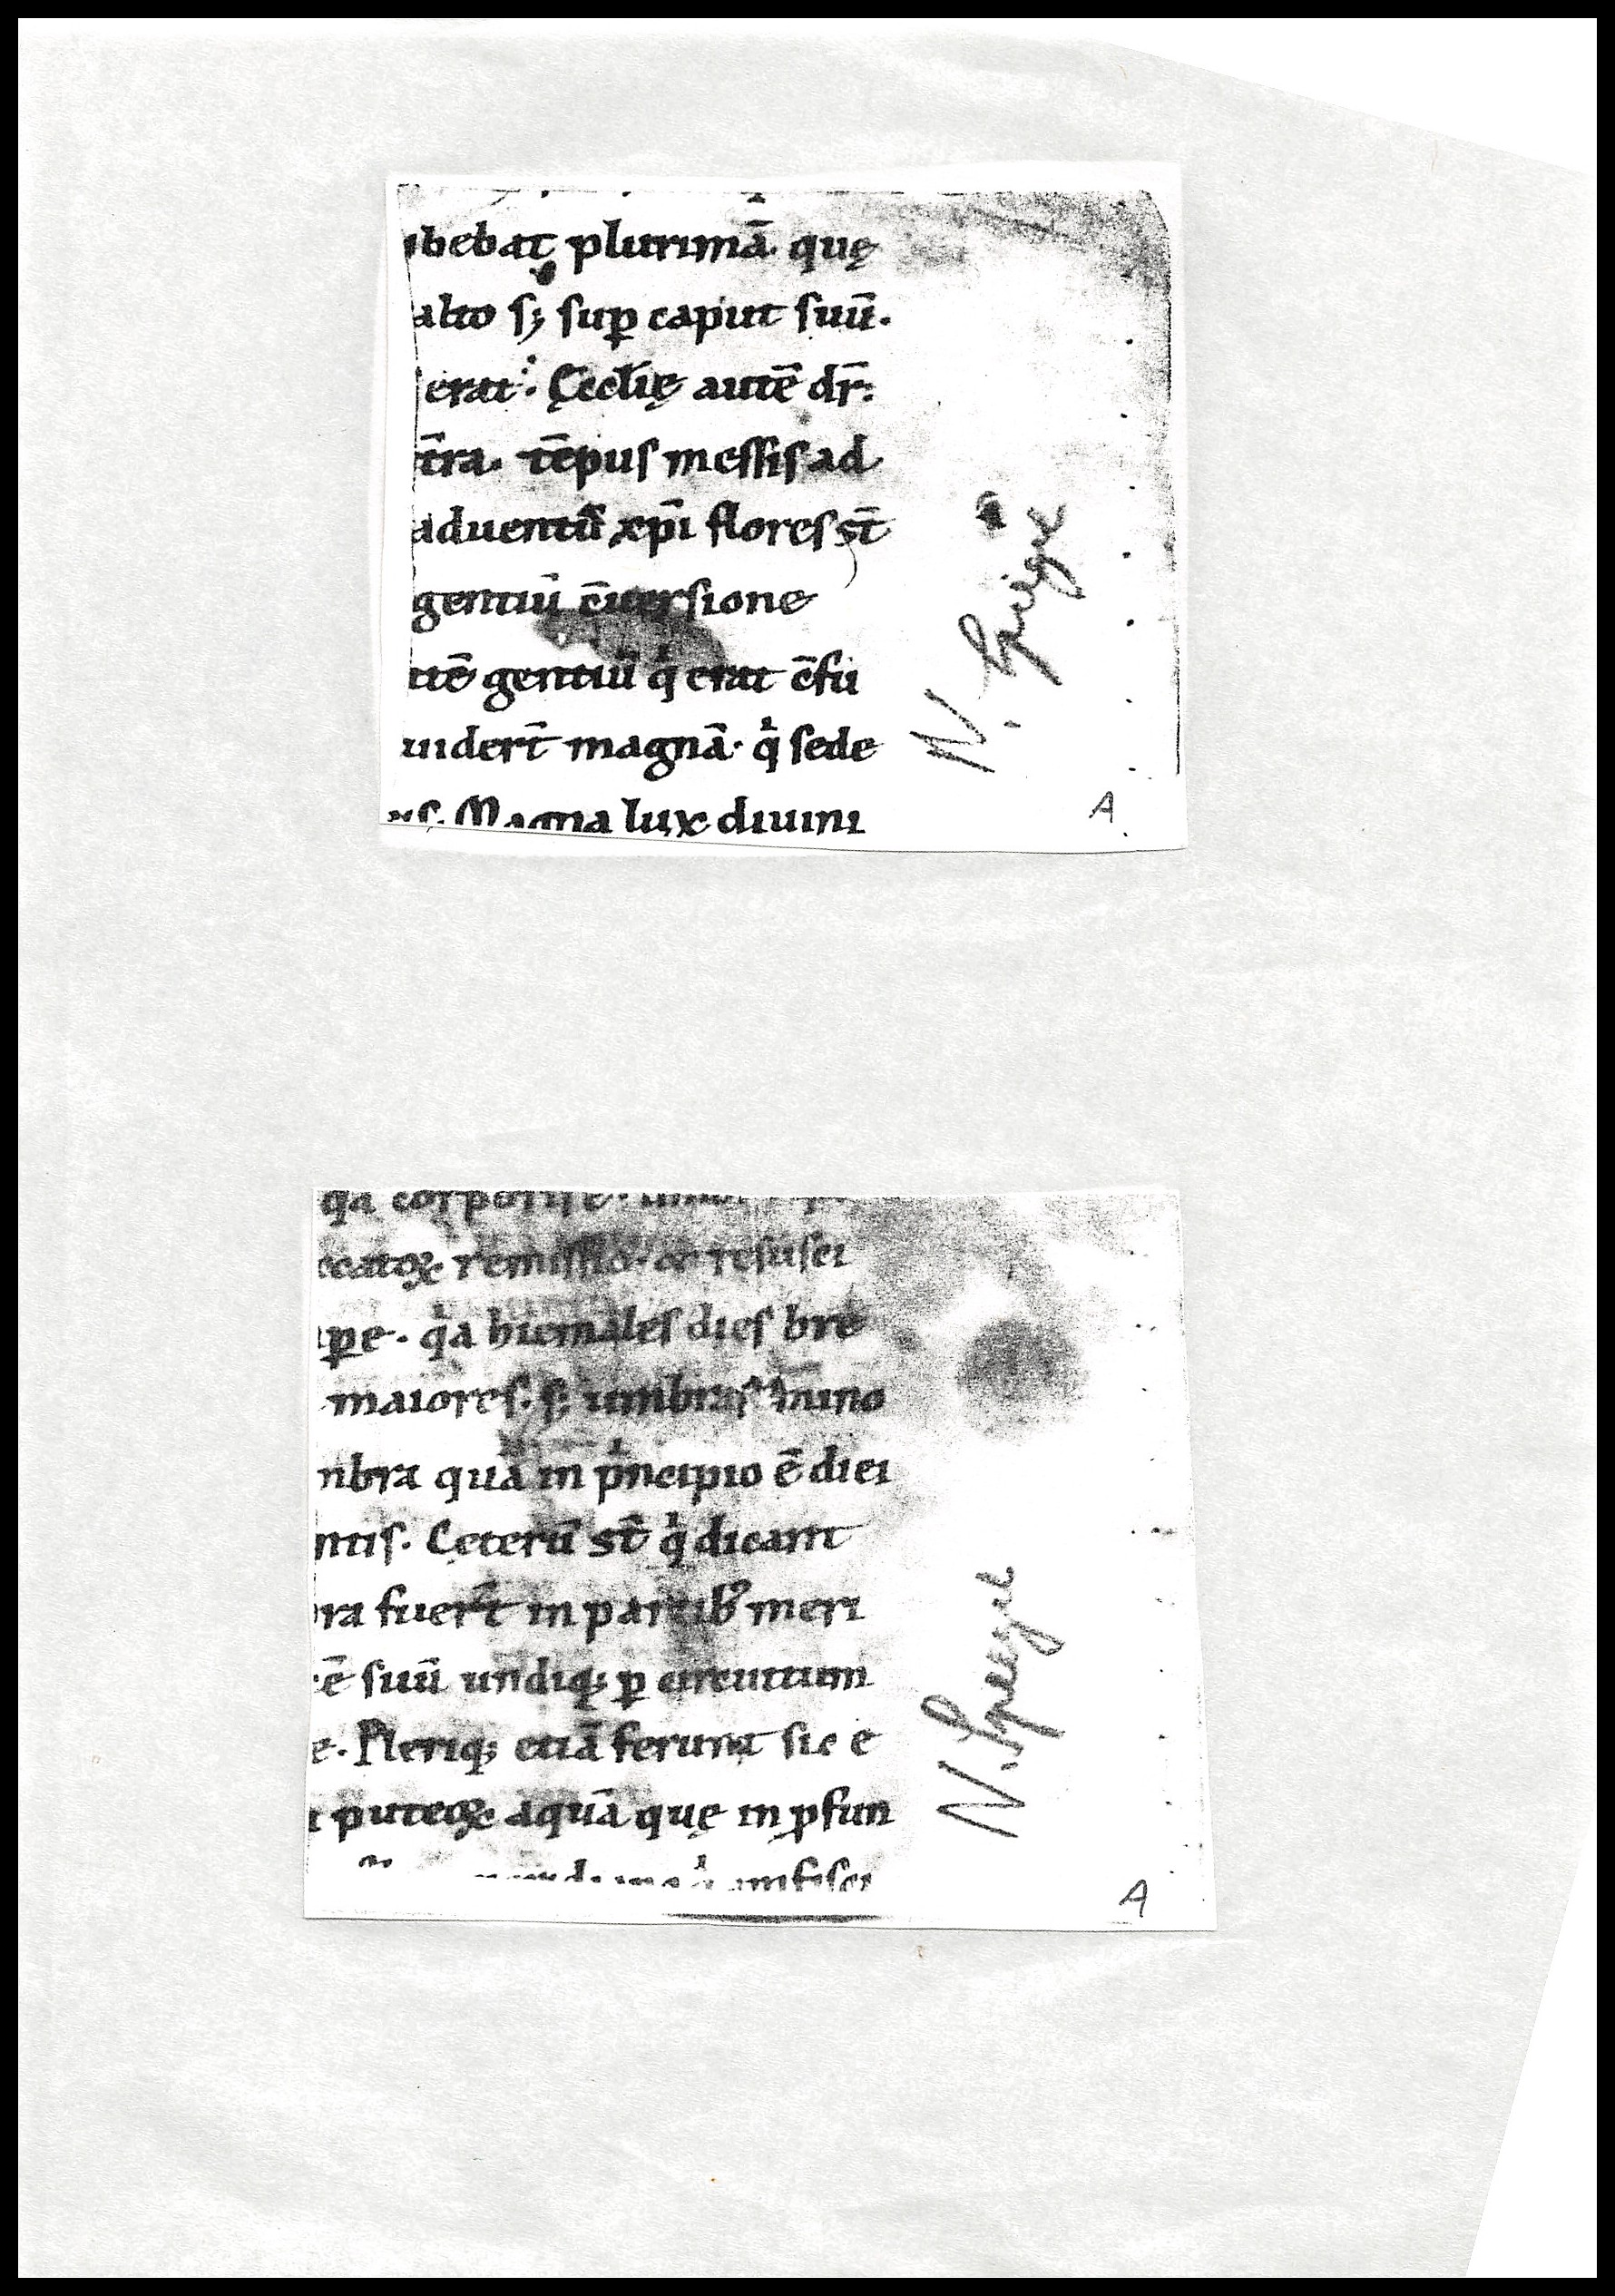 bebat plurimā. quę
alto ſꝫ ſuꝑ caput ſuū.
erat. Ęccłię autē dr̄:
t̄ra. tēpuſ meſſiſ ad
aduentū xp̄i floreſ st̄
gentiū c̄uerſione
tē gentiū qͥ erat c̄fu
uiderт̄ magnā. qͥ ſede
Magna lux diuini
N.
A
qa corporiſ
catoꝝ remiſſio. &c reſuſci
ꝑe. qͥa hiemaleſ dieſ bre
maioreſ. ſꝫ umbraſ mino
nbra quā in pͥncipio ē diei
ntiſ. Ceterū st̄ qͥ dicant
ra fuer̄t in partibꝰ meri
ē ſuū undiqꝫ ꝑ circuitum
e. Pleriqꝫ etiā ferunt sic e
puteoꝝ aquā quę in ꝓfun
N.
A